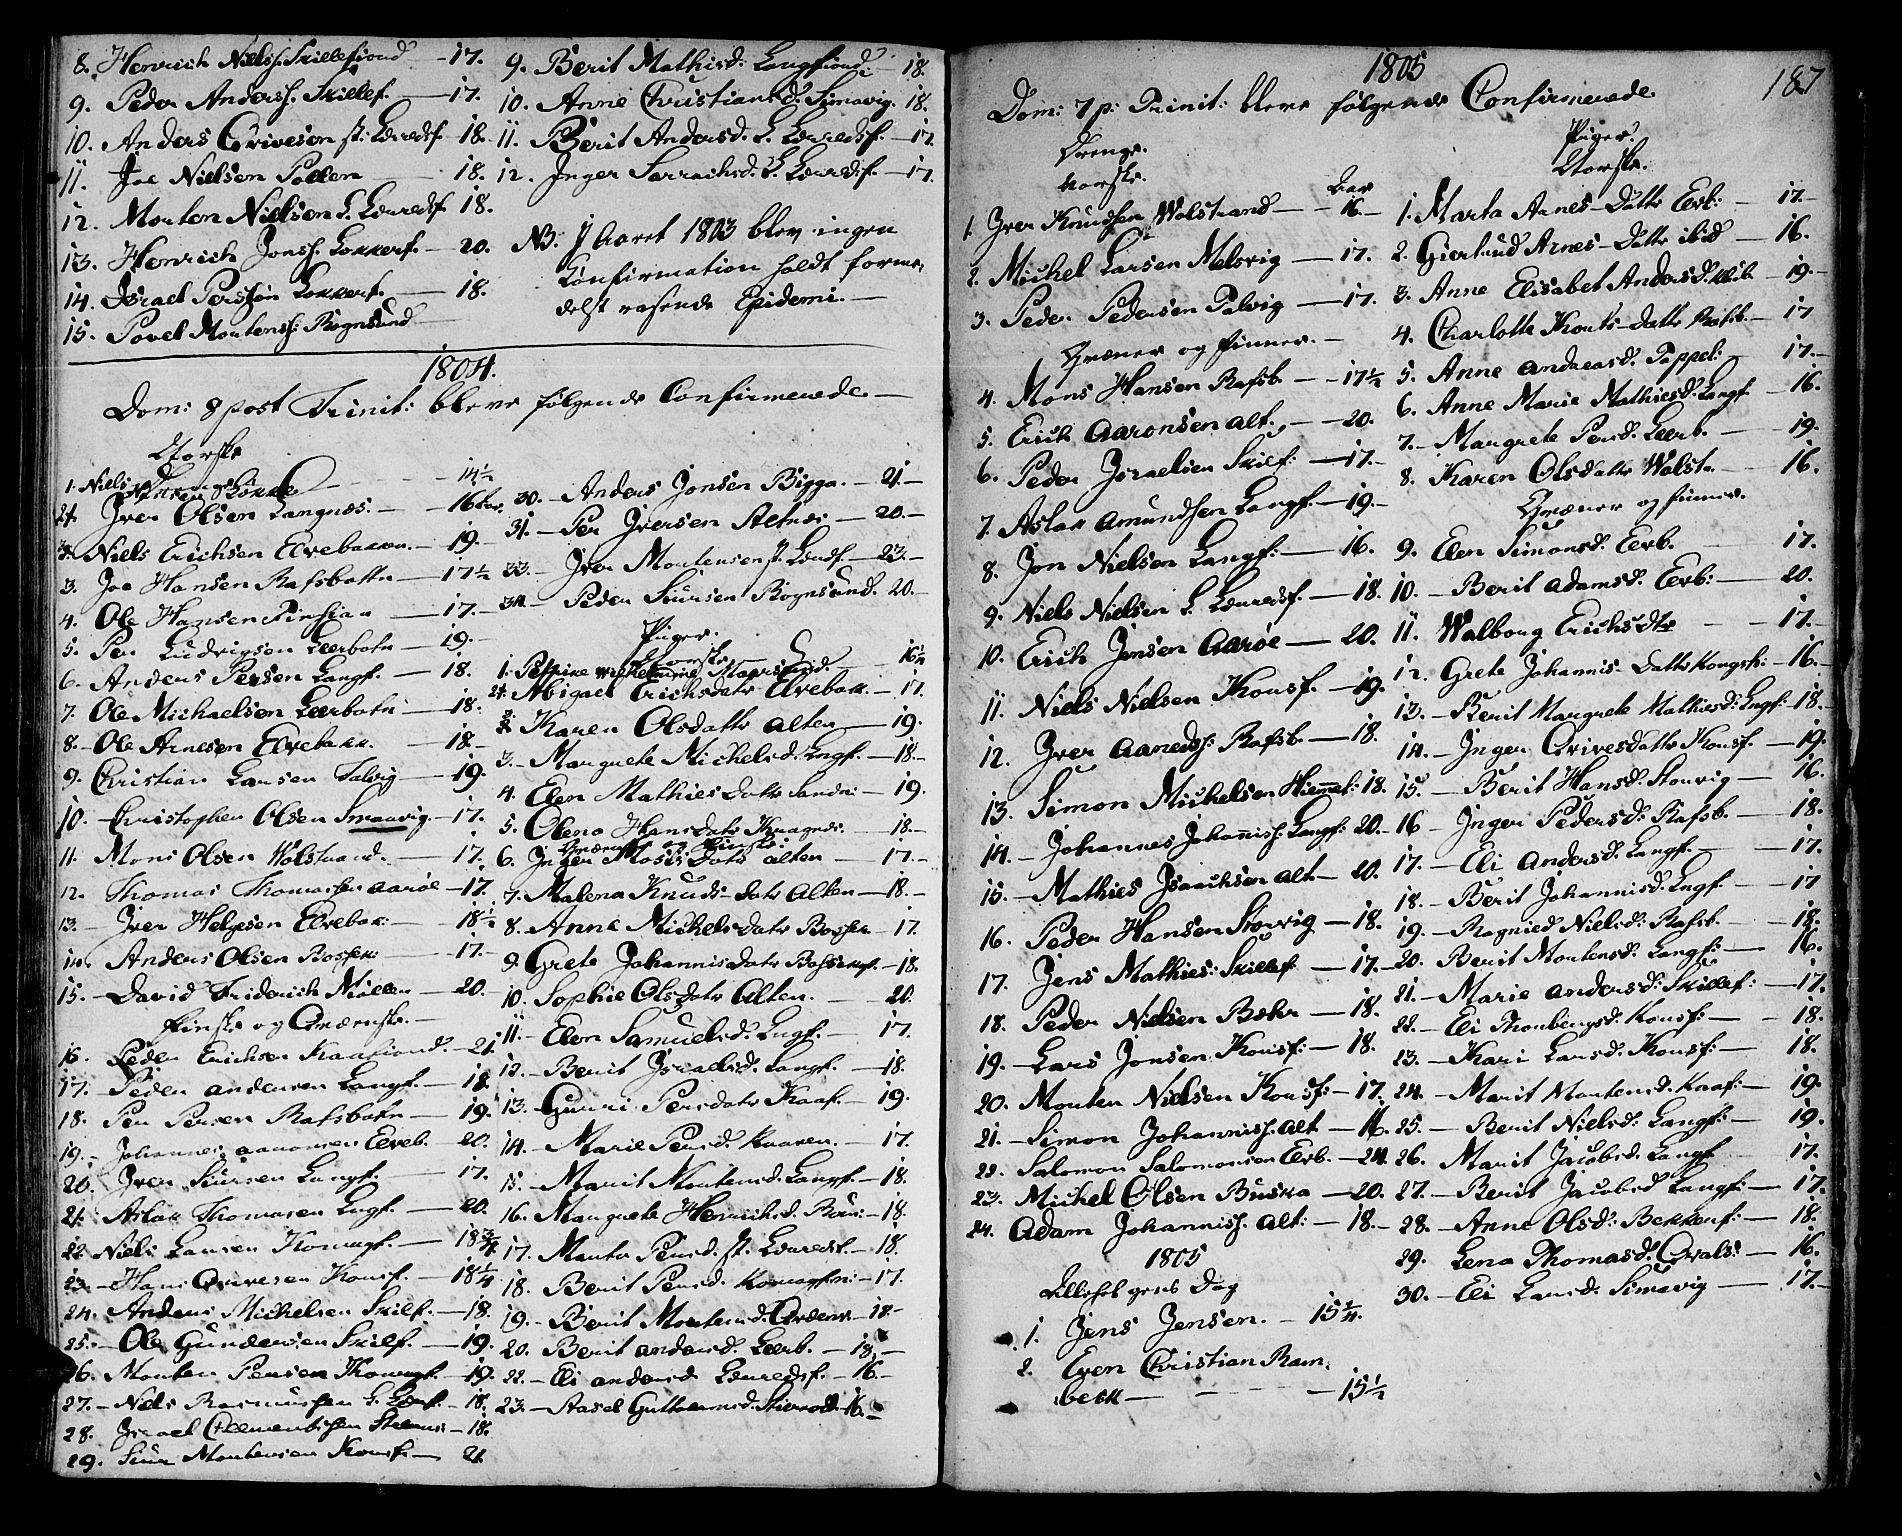 8. Henrich Nielsf. Skillefiord - 17.
9. Peder Andersf. Skillef. - 17.
10. Anders Qvivesen st. Leeredsf. 18.
11. Joe Nielsen Pollen - 18.
12. Morten Nielsen L. Leeredsf. 18.
13. Henrich Jonsf. Lokkerf. - 20.
14. Israel Persson Lokkerf. - 18.
15. Povel Mortensf. Rognsund
9. Berit Mathisd: Langfiord - 18.
10. Anne Christiansd. Simavig. 18.
11. Berit Andersd. L. Leeredsf. - 17.
12. Inger Sarrachsd. L. Leeredsf. - 17.
NB. I Aaret 1803 blev ingen
Confirmation holdt forme-
delst rasende Epidemi.
1804.
Dom: 8 post Trinit: bleve følgende Confirmerede
Norske
Drenge
1. Niels 14½
2. Iver Olsen Langnæs. - 16
Niels Erichsen Elvebakken. - 19.
3. Joe Hansen Rafsbotn - 17½
4. Ole Hansen - 17.
5. Per Ludvigsen Leerbotn - 19.
6. Anders Persen Langf. - 18.
7. Ole Michaelsen Leerbotn - 18.
8. Ole Arnesen Elvebakk. - 18.
9. Christian Larsen Talvig - 19.
10. Christopher Olsen Smaavig. - 17.
11. Mons Olsen Wolstrand. - 17.
12. Thomas Thomassen Aarøe - 17.
13. Iver Helgesen Elvebak: - 18½
14. Anders Olsen Bossek: - 17.
15. David Friderich Møller - 20.
Finske og Qvænske.
16. Peder Erichsen Kaafiord. - 21.
17. Peder Andersen Langf. - 18.
18. Per Persen Rafsbotn - 19.
19. Johannes Aaronsen Elveb. - 20.
20. Iver Siursen Langf. - 17.
21. Aslak Thomasen Lngf. - 20.
22. Niels Larsen Komagf. - 18¾
23. Hans Qvivesen Konsf. - 18¼
24. Anders Michelsen Skilf. - 18.
25. Ole Gundersen Skilf. - 19.
26. Morten Persen Komagf. - 19.
27. Niels Rasmussen L. Leerf. - 18.
28. Israel Clementsen - 18.
29. Siur Mortensen Konsf. - 21.
30. Anders Jonsen Bigga. - 21.
31. Per Iversen Altnes - 20.
33. Iver Mortensen st. Leerdsf. - 23.
34. Peder Siursen Rognsund. 20.
Piger.
Norske
1. Petrine Wilhelmine 16½
2. Abigael Erichsdatr Elvebakk. - 17.
3. Karen Olsdattr Alten - 19.
3. Margrete Michelsd. Lngf. - 18.
4. Elen Mathiesdatr Sandn: - 19.
5. Olena Hansdatr Kragnes. - 18.
Qvænske og Finske:
6. Inger Mosisdatr Alten - 17.
7. Malena Knudsdatr Alten - 18.
8. Anne Michelsdatr Bossek - 17.
9. Grete Johannisdatr Bossekof. - 18.
10. Sophie Olsdatr Alten. - 20.
11. Elen Samuelsd. Lngf. - 17.
12. Berit Israelsd. Langf. - 18.
13. Gunri Persdatr Kaaf. - 19.
14. Marie Persd. Kaaven. - 17.
15. Marit Mortensd. Langf. - 18.
16. Margrete Henrichsd. - 18.
17. Marta Persd. st. Leeredsf. - 18.
18. Berit Persd. Komagfn: - 17.
19. Berit Mortensd. - 18.
20. Berit Andersd. Leerb. - 18.
22. Eli Andersd. Leeredsf. - 16.
23. Aasel Guttormsd. - 16.
1805
187
Dom: 7 p: Trinit: bleve følgende Confirmerede
Drenge.
Norske.
Aar
1. Iver Knudsen Wolstrand - 16.
2. Michel Larsen Melsvig - 17.
3. Peder Pedersen Talvig - 17.
Qvæner og Finner.
4. Mons Hansen Rafsb. - 17½
5. Erich Aaronsen Alt. - 20.
6. Peder Israelsen Skilf: - 17.
7. Aslak Amundsen Langf. - 19.
8. Jon Nielsen Langf: - 16.
9. Niels Nielsen L. Leeredsf. - 18.
10. Erich Jonsen Aarøe - 20.
11. Niels Nielsen Konsf. - 19.
12. Iver Aaredsf. Rafsb. - 18.
13. Simon Michelsen Hiemel: 18.
14. Johannes Johannisf. Langf: 20.
15. Mathies Isaachsen Alt. - 20.
16. Peder Hansen Storvig - 18.
17. Jens Mathies: Skillef. - 17.
18. Peder Nielsen Bekr - 18.
19. Lars Jonsen Konsf: - 18.
20. Morten Nielsen Konsf: - 17.
21. Simon Johannisf. Alt - 16.
22. Salomon Salomonsen Elvb. - 24.
23. Michel Olsen Buska - 20.
24. Adam Johannisf. Alt: - 18.
1805
Lillehelgens Dag
1. Jens Jensen. - 15¼.
2. Even Christian Ram-
beck - 15½
Piger.
Norske.
1. Marta Arnes-Dattr Elvb: - 17.
2. Giertrud Arnes-Dattr ibid - 16.
3. Anne Elisabet Andersd. Elvb. - 19.
4. Charlotte Konts-Dattr Rafsb. - 17
5. Anne Andreasd. Poppel: - 17.
6. Anne Marie Mathiesd. Langf. - 16.
7. Margrete Persd. Leerb. - 19.
8. Karen Olsdattr Wolst. - 16.
Qvæner og Finner.
9. Elen Simonsd. Elvb. 17.
10. Berit Adamsd. Elvb: - 20.
11. Walborg Erichsdtr - 17.
12. Grete Johannis-Dattr Kongsh: - 16.
13. Berit Margrete Mathiesd: Lngf: 18.
14. Inger Qvivesdattr Konsf. - 19.
15. Berit Hansd. Storvig - 16.
16. Inger Pedersd: Rafsb. - 18.
17. Eli Andersd. Langf. - 17.
18. Berit Johannisd. Lngf. - 17
19. Ragnied Nielsd: Rafsb. - 18.
20. Berit Mortensd. Langf: - 16.
21. Marie Andersd: Skillef: - 17.
22. Eli Thorbergsd. Konsf: - 18.
23. Kari Larsd. Konsf: - 18.
24. Marit Mortensd. Kaaf: - 19.
25. Berit Nielsd. Langf: - 19.
26. Marit Jacobsd. Langf. 17.
27. Berit Jacobsd. Langf: - 17.
28. Anne Olsd: Bekkerf: - 18.
29. Lena Thomasd. Qvals: - 16.
30. Eli Larsd. Simavig - 17.